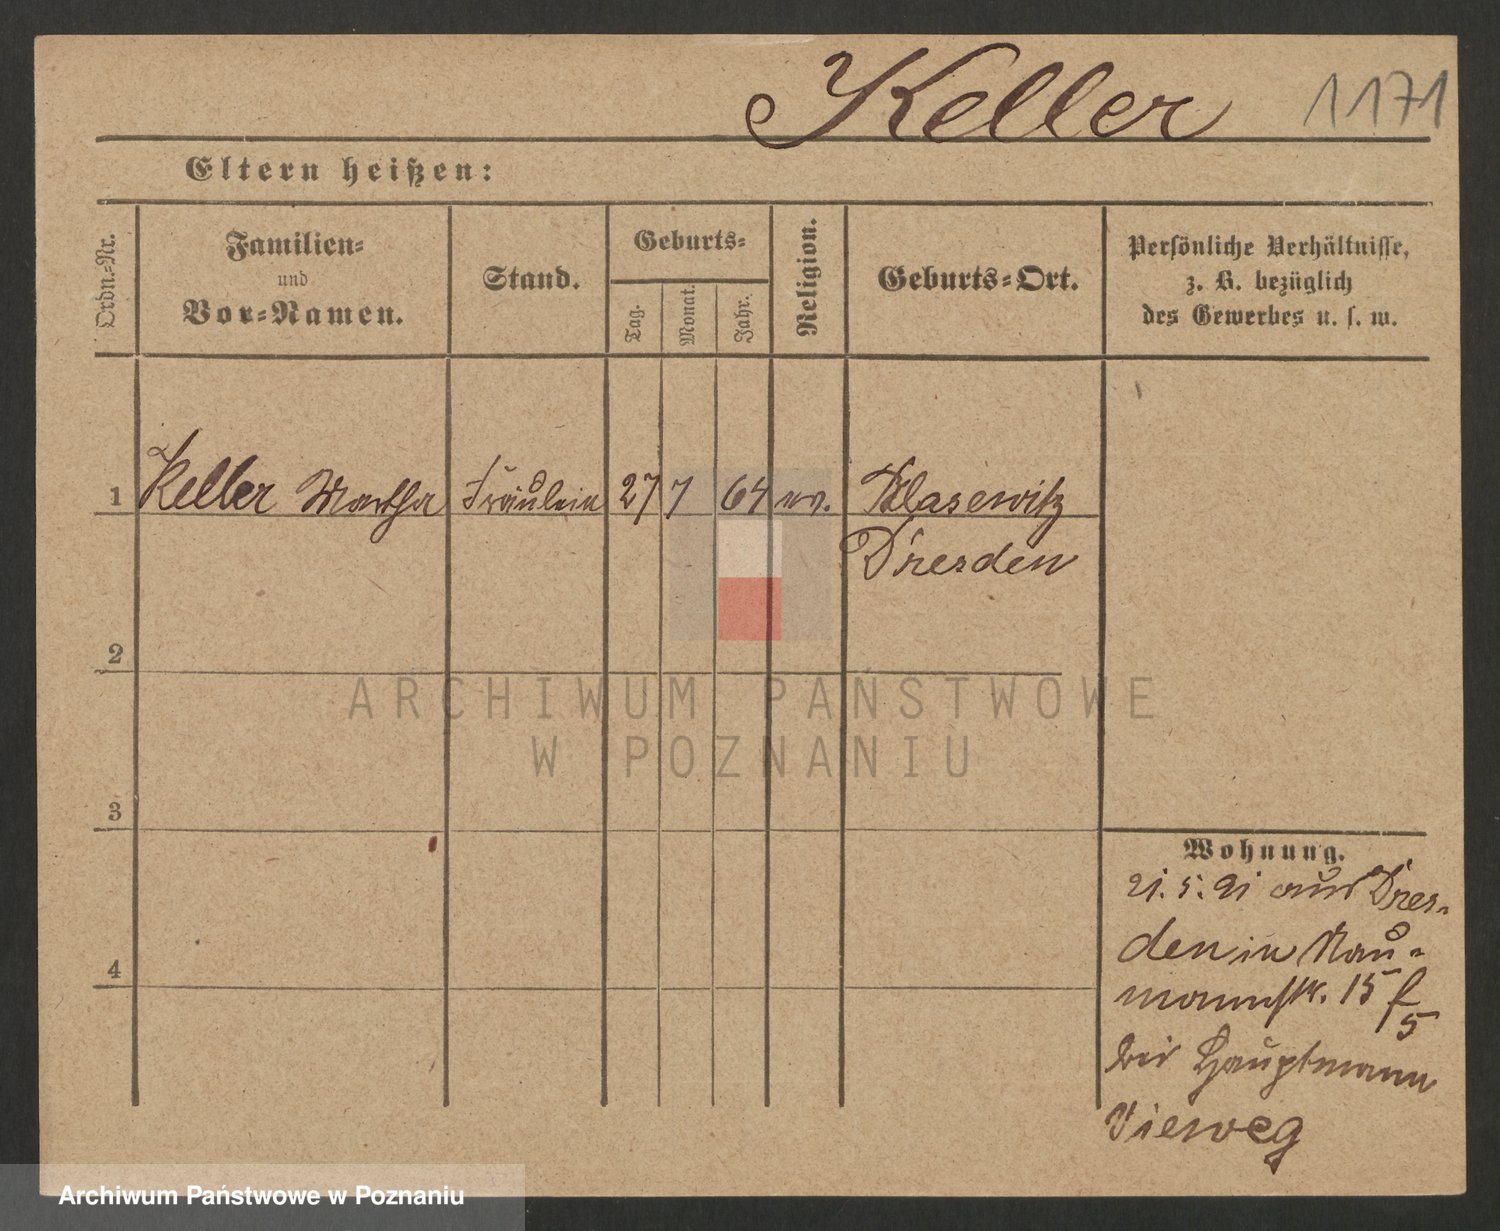 Keller 1171
Eltern heißen:
Ordn.=Nr.
Familien=
und
Vor=Namen.
Stand.
Geburts=
Tag.
Monat.
Jahr.
Religion.
Geburts=Ort.
Persönliche Verhältnisse,
z. B. bezüglich
des Gewerbes u. s. w.
1 Keller Martha Fräulein 27 7 64 ev. Blasewitz
Dresden
2
3
4
Wohnung.
21. 5. 91 aus Dres-
den in Nau-
mannstr. 15 f
5
bei Hauptmann
Vieweg
ARCHIWUM PAŃSTWOWE
W POZNANIU
Archiwum Państwowe w Poznaniu